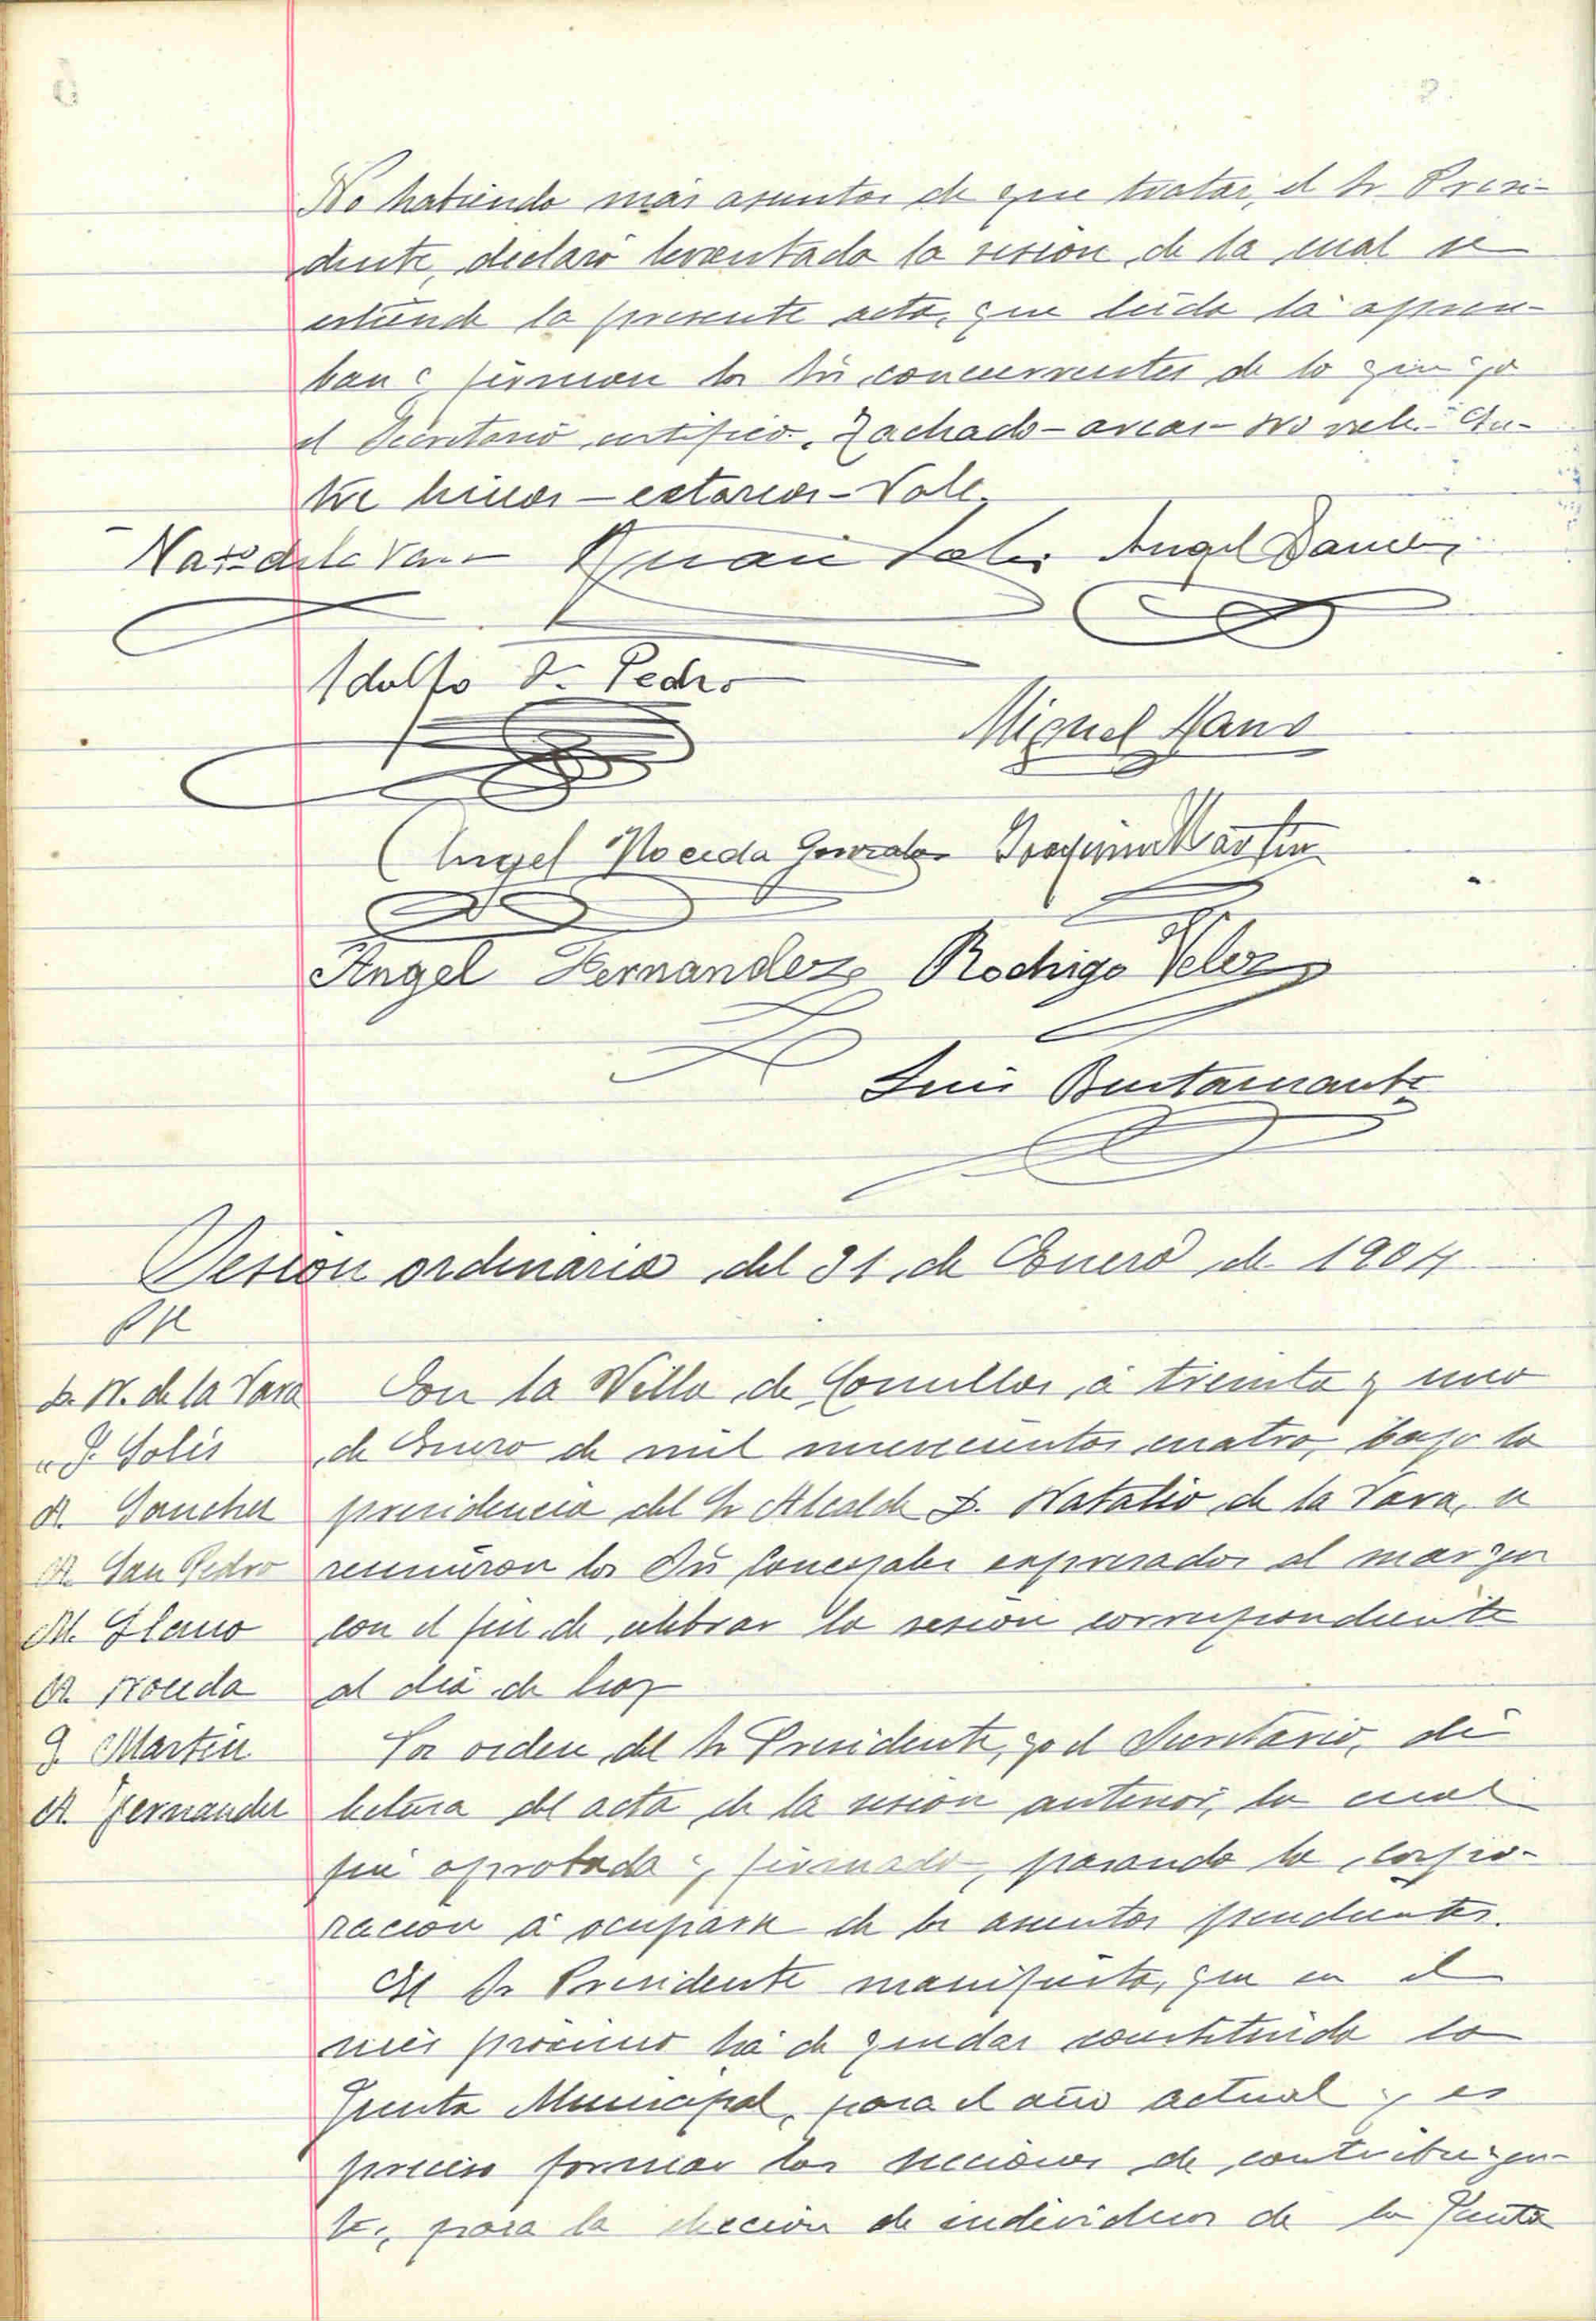 No habiendo más asuntos de que tratar, el Sr Presi-
dente, declaró levantada la sesion, de la cual se
extiende la presente acta, que leida la aprue-
ban y firman los Sres concurrentes de lo que yo
el Secretario certifico. Tachado - arcas - no vale. - En-
tre lineas - estarias - Vale.
Nat. de la Vara Juan Solis Angel Sanchez
Adolfo S. Pedro
Miguel Llano
Angel Noceda Gonzalez Joaquin Martin
Angel Fernandez Rodrigo Velez
Luis Bustamante
Sesion ordinaria del 31 de Enero de 1904
D. N. de la Vara
" J. Solis
A. Sanchez
A. San Pedro
M. Llano
A. Noceda
J. Martin
A. Fernandez
En la Villa de Comillas, á treinta y uno
de Enero de mil novecientos cuatro, bajo la
presidencia del Sr Alcalde D. Natalio de la Vara, se
reunieron los Sres Concejales expresados al margen
con el fin de celebrar la sesion correspondiente
al dia de hoy
Por orden del Sr Presidente, yo el Secretario, di
lectura del acta de la sesion anterior, la cual
fué aprobada y firmada, pasando la corpo-
racion á ocuparse de los asuntos pendientes.
El Sr Presidente manifiesta, que en el
mes próximo há de quedar constituida la
Junta Municipal, para el año actual y es
preciso formar las secciones de contribuyen-
tes, para la eleccion de individuos de la Junta